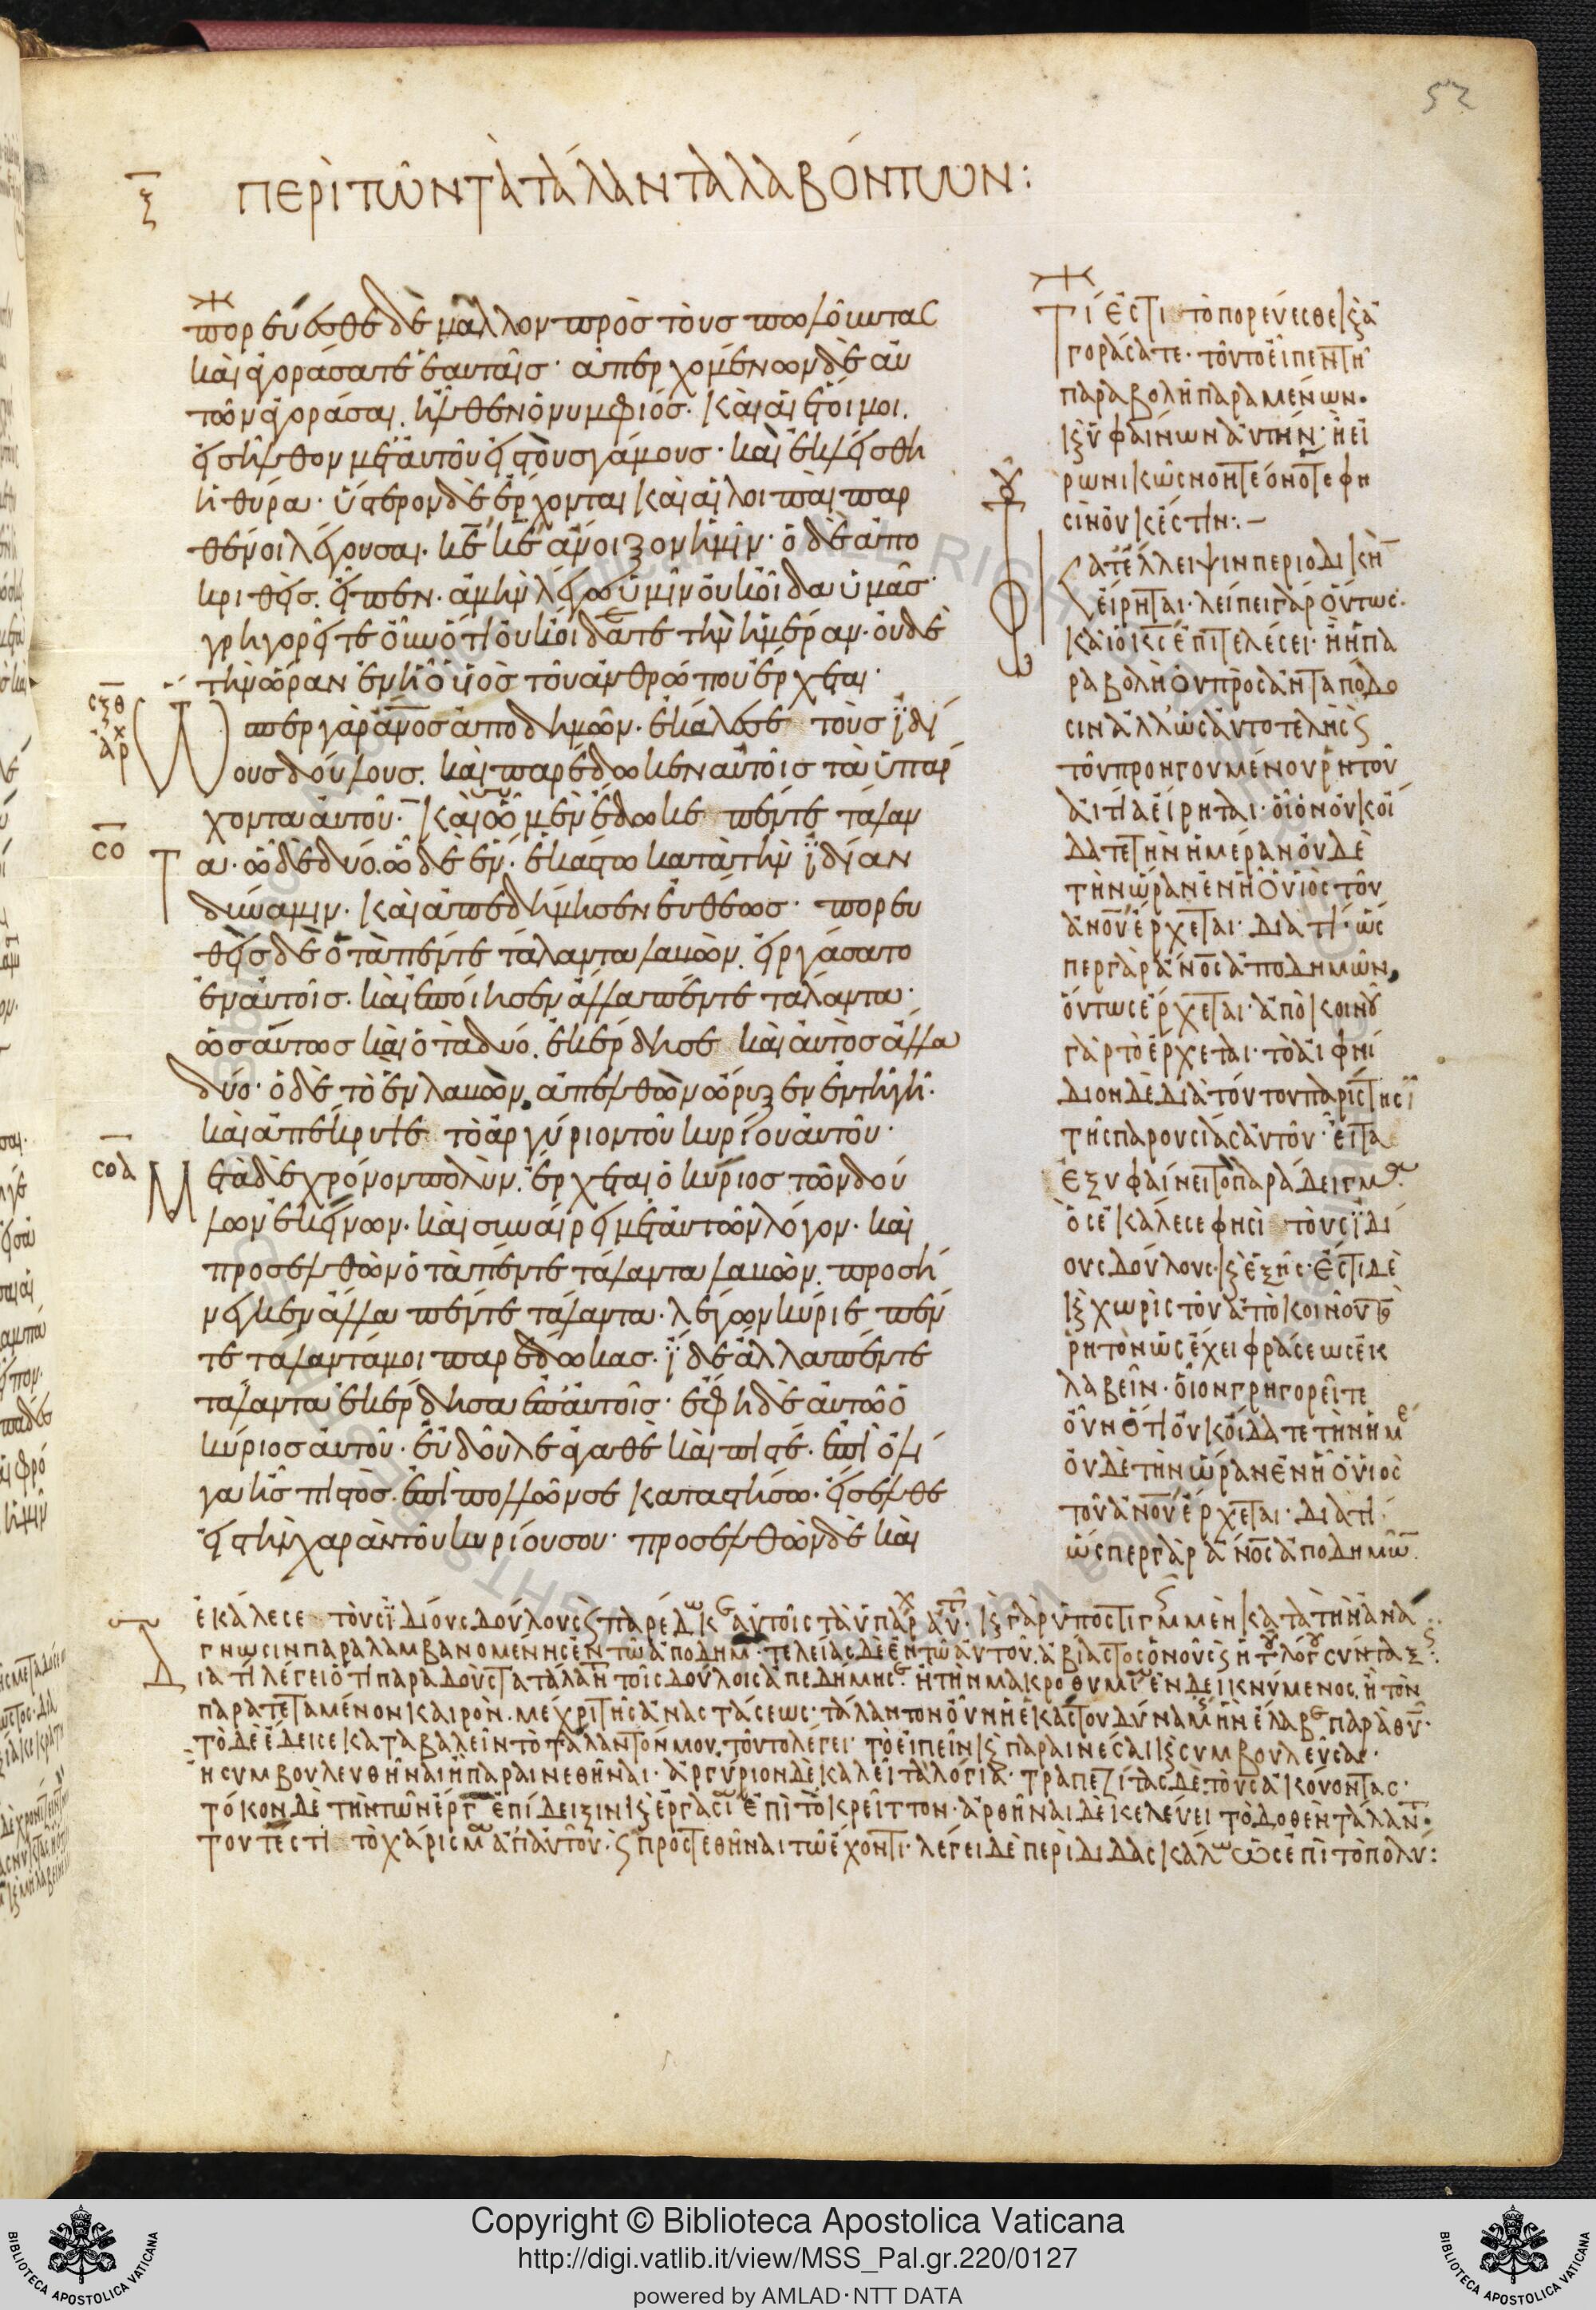 52
ξ̅ περὶ τῶν τὰ τάλαντα λαβόντων:
πορεύεσθε δὲ μᾶλλον πρὸς τοὺς πωλοῦντας
καὶ ἀγοράσατε ἑαυταῖς· ἀπερχομένων δὲ αὐ
τῶν ἀγοράσαι. ἦλθεν ὁ νυμφίος· καὶ αἱ ἕτοιμοι.
εἰσῆλθον μετ' αὐτοῦ εἰς τοὺς γάμους· καὶ ἐκλείσθη
ἡ θύρα· ὕστερον δὲ ἔρχονται καὶ αἱ λοιπαὶ παρ
θένοι λέγουσαι· κ̅ε̅ κ̅ε̅ ἄνοιξον ἡμῖν· ὁ δὲ ἀπο
κριθεὶς. εἶπεν· ἀμὴν λέγω ὑμῖν οὐκ οἶδα ὑμᾶς·
γρηγορεῖτε οὖν ὅτι οὐκ οἴδατε τὴν ἡμέραν· οὐδὲ
τὴν ὥραν ἐν ᾗ ὁ υἱὸς τοῦ ἀνθρώπου ἔρχεται·
σξθ Ὥσπερ γὰρ ἄν̅ο̅ς ἀποδημῶν· ἐκάλεσε τοὺς ἰδί
ους δούλους. καὶ παρέδωκεν αὐτοῖς τὰ ὑπάρ
χοντα αὐτοῦ· καὶ ᾧ μὲν ἔδωκε πέντε τάλαν
σο τα· ᾧ δὲ δύο. ᾧ δὲ ἕν· ἑκάστω κατὰ τὴν ἰδίαν
δύναμιν· καὶ ἀπεδήμησεν εὐθέως· πορευ
θεὶς δὲ ὁ τὰ πέντε τάλαντα λαβὼν. εἰργάσατο
ἐν αὐτοῖς. καὶ ἐποίησεν ἄλλα πέντε τάλαντα·
ὡσαύτως καὶ ὁ τὰ δύο. ἐκέρδησε καὶ αὐτὸς ἄλλα
δύο· ὁ δὲ τὸ ἓν λαβὼν. ἀπελθὼν ὤρυξεν ἐν τῆ γῆ·
καὶ ἀπέκρυψε τὸ ἀργύριον τοῦ κυρίου αὐτοῦ·
σοα Μετὰ δὲ χρόνον πολὺν. ἔρχεται ὁ κύριος τῶν δού
λων ἐκείνων. καὶ συναίρει μετ' αὐτῶν λόγον· καὶ
προσελθὼν ὁ τὰ πέντε τάλαντα λαβὼν. προσή
νεγκεν ἄλλα πέντε τάλαντα· λέγων κύριε πέν
τε τάλαντά μοι παρέδωκας· ἴδε ἄλλα πέντε
τάλαντα ἐκέρδησα ἐπ' αὐτοῖς· ἔφη δὲ αὐτῶ ὁ
κύριος αὐτοῦ· εὖ δοῦλε ἀγαθὲ καὶ πιστέ. ἐπὶ ὀλί
γα ἦς πιστὸς. ἐπὶ πολλῶν σε καταστήσω· εἴσελθε
εἰς τὴν χαρὰν τοῦ κυρίου σου· προσελθὼν δὲ καὶ
Τί ἐστι τὸ πορεύεσθε κ(αὶ) ἀ
γοράσατε· τοῦτο εἶπεν τῆ
παραβολῆ παραμένων·
κ(αὶ) ὑφαίνων αὐτήν· ἢ εἰ
ρωνικῶς νοεῖται
σὶν οὐκ ἔστιν:–
Κατ' ἔλλειψιν περιοδικὴ
εἴρηται· λείπει γὰρ οὕτως·
παρα
βολὴ οὐ πρὸς ἀνταπόδο
σιν ἀλλ' ὡς αὐτοτελὴς
τοῦ προηγουμένου ῥητοῦ
αἰτία εἴρηται· οἷον οὐκ οἴ
δατε τὴν ἡμέραν οὐδὲ
τὴν ὥραν ἐν ᾗ ὁ υἱὸς τοῦ
ἀν̅ο̅υ̅ ἔρχεται· διατί· ὥσ
περ γὰρ ἄν̅ο̅ς ἀποδημῶν,
οὕτως ἔρχεται· ἀπὸ κοινοῦ
γὰρ τὸ ἔρχεται· τὸ αἰφνί
διον δὲ διὰ τούτου παρίστησι
τῆς παρουσίας αὐτοῦ· εἶτα
ἐξυφαίνει τὸ παράδειγμα·
ὃς ἐκάλεσε φησὶ τοὺς ἰδί
ους δούλους· κ(αὶ) ἑξῆς· ἔστι δὲ
κ(αὶ) χωρὶς τοῦ ἀπὸ κοινοῦ τὸ
ῥητὸν ὡς ἔχει φράσεως ἐκ
λαβεῖν· οἷον γρηγορεῖτε
οὖν ὅτι οὐκ οἴδατε τὴν ἡμέ
οὐδὲ τὴν ὥραν ἐν ᾗ ὁ υἱὸς
τοῦ ἀν̅ο̅υ̅ ἔρχεται· διατί·
ὥσπερ γὰρ ἄν̅ο̅ς ἀποδημῶ̅.
ἐκάλεσε τοὺς ἰδίους δούλους κ(αὶ) παρέδωκ αὐτοῖς τὰ ὑπάρχ αὐ· κατὰ τὴν ἀνά
γνωσιν παραλαμβανομένης ἐν τῶ ἀποδημ· τελείας δὲ ἐν τῶ αὐτοῦ. ἀβίαστος ὁ νοῦς
Διατί λέγει ὅτι παραδοὺς τὰ τάλαν τοῖς δούλοις ἀπεδήμησε· ἢ τὴν μακροθυμί ἐνδεικνύμενος, ἢ τὸν
παρατεταμένον καιρὸν. μέχρι τῆς ἀναστάσεως· τάλαντον οὖν ἡ ἑκάστου δύναμις ἣν ἔλαβε παρὰ θ̅υ̅·
τὸ δὲ ἔδει σε καταβαλεῖν τὸ τάλαντόν μου. τοῦτο λέγει· τὸ εἰπεῖν κ(αὶ) παραινέσαι κ(αὶ) συμβουλεῦσαι·
ἢ συμβουλευθῆναι ἢ παραινεθῆναι· ἀργύριον δὲ καλεῖ τὰ λόγια· τραπεζίτας δὲ τοὺς ἀκούοντας·
τόκον δὲ τὴν τῶν ἔργ ἐπίδειξιν κ(αὶ) ἐργασί ἐπὶ τὸ κρεῖττον· ἀρθῆναι δὲ κελεύει τὸ δοθὲν τάλαντ·
τουτέστι τὸ χάρισμα ἀπ' αὐτοῦ· κ(αὶ) προστεθῆναι τῶ ἔχοντι· λέγει δὲ περὶ διδασκάλω ὡς ἐπὶ τὸ πολύ:
Copyright © Biblioteca Apostolica Vaticana
http://digi.vatlib.it/view/MSS_Pal.gr.220/0127
powered by AMLAD·NTT DATA
BIBLIOTECA APOSTOLICA VATICANA
BIBLIOTECA APOSTOLICA VATICANA